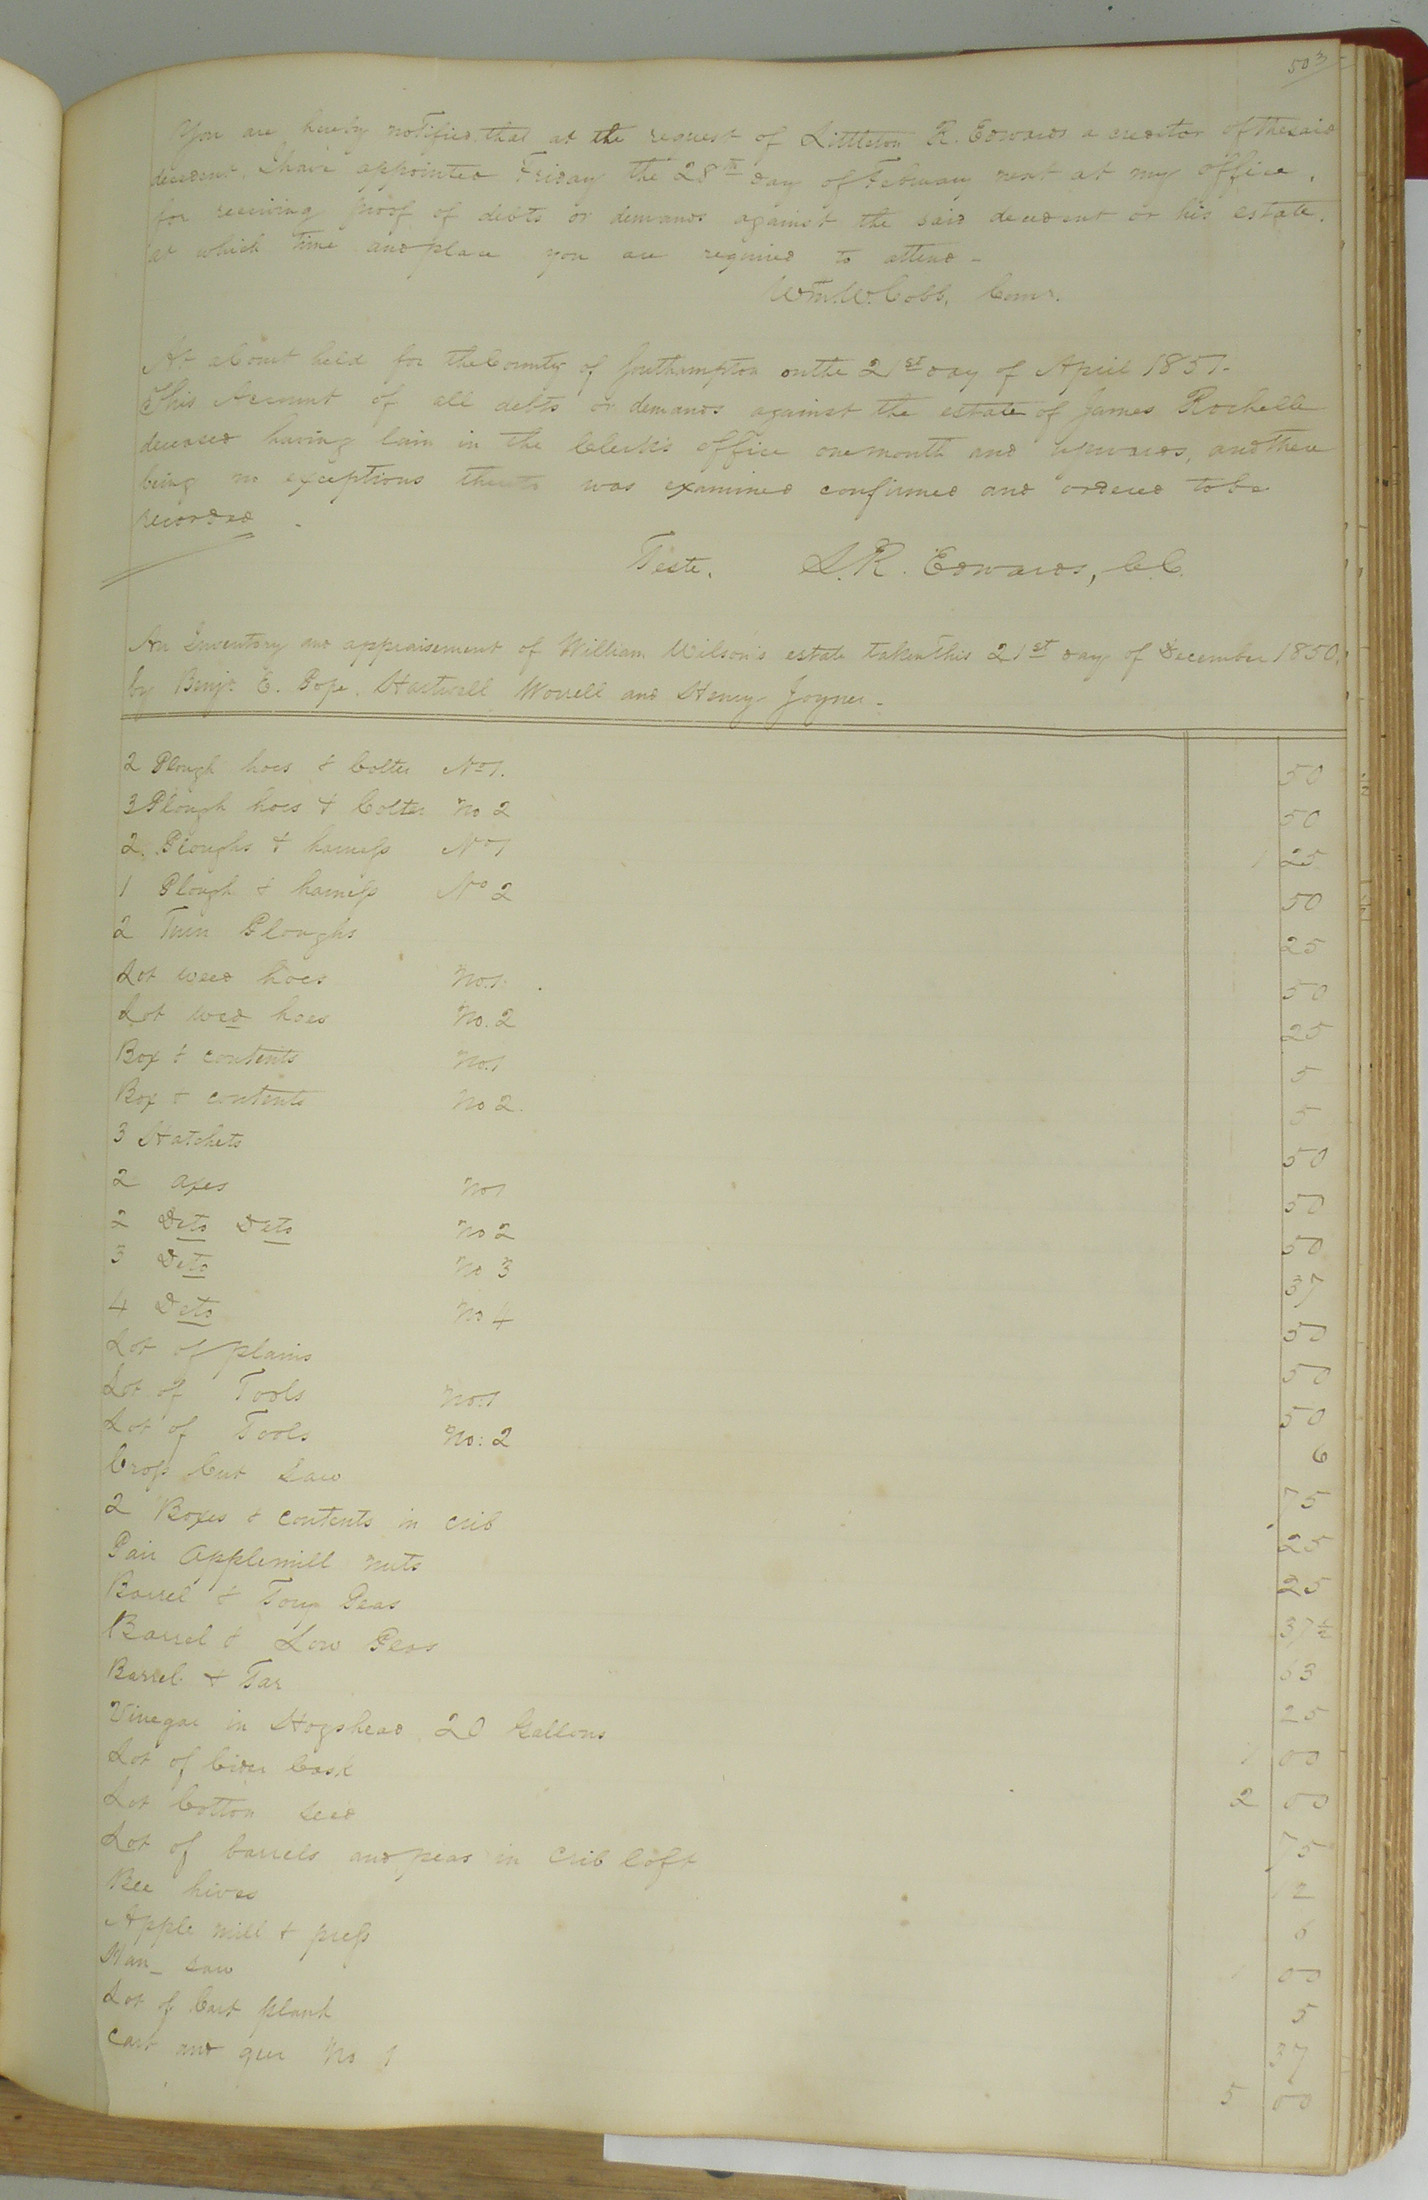 503
You are hereby notified that at the request of Littleton R. Edwards a creditor of the said
decedent. I have appointed Friday the 28th day of February next at my office,
for receiving proof of debts or demands against the said decedent or his estate.
at which time and place you are required to attend -
Wm. W. Cobb, Comr.
At a Court held for the County of Southampton on the 21st day of April 1851.
This Account of all debts or demands against the estate of James Rochelle
deceased having lain in the Clerk's office one month and upwards, and there
being no exceptions thereto was examined confirmed and ordered to be
recorded.
Teste. L. R. Edwards, C.C.
An Inventory and appraisement of William Wilson's estate taken this 21st day of December 1850.
by Benjn. E. Pope. Hartwell Worrell and Henry Joyner.
2 Plough hoes & Colter No 1. 50
3 Plough hoes & Colter No 2 50
2. Ploughs & harness No 1 1 25
1 Plough & harness No 2 50
2 Turn Ploughs 25
Lot weed hoes No. 1. 50
Lot weed hoes No. 2 25
Box & contents No. 1 5
Box & contents No 2. 5
3 Hatchets 50
2 axes No 1 50
2 Deto Deto No 2 50
3 Deto No 3 37
4 Deto No 4 50
Lot of plains 50
Lot of Tools No. 1 50
Lot of Tools No: 2 6
Cross Cut Saw 75
2 Boxes & contents in crib 25
Pair Applemill nuts 25
Barrel & Peas 37½
Barrel & Peas 63
Barrel & Tar 25
Vinegar in Hogshead 20 Gallons 1 00
Lot of Cider Cask 2 00
Lot Cotton seed 75
Lot of barrels and peas in crib loft 12
Bee hives 6
Apple mill & press 1 00
Han- saw 5
Lot of Cart plank 37
Cart and geer No 1 5 00